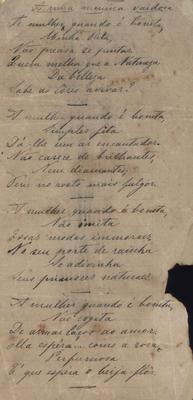 A uma menina vaidosa
A mulher, quando é bonita,
Minha Rita,
Não precisa se pintar.
Quem melhor que a Natureza
Da belleza
Sabe as côres avivar?
A mulher quando é bonita,
Simples fita
Dá-lhe um ar encantador.
Não carece de brilhantes,
Nem diamantes,
Tem no rosto mais fulgor.
A mulher quando é bonita,
Não imita
Essas modas immoraes,
No seu porte de rainha
Se adivinha
Seus primores naturaes.
A mulher quando é bonita,
Não cogita
De armar laços ao amor:
Ella espera... como a rosa,
Perfumosa
É que espera o beija flôr.